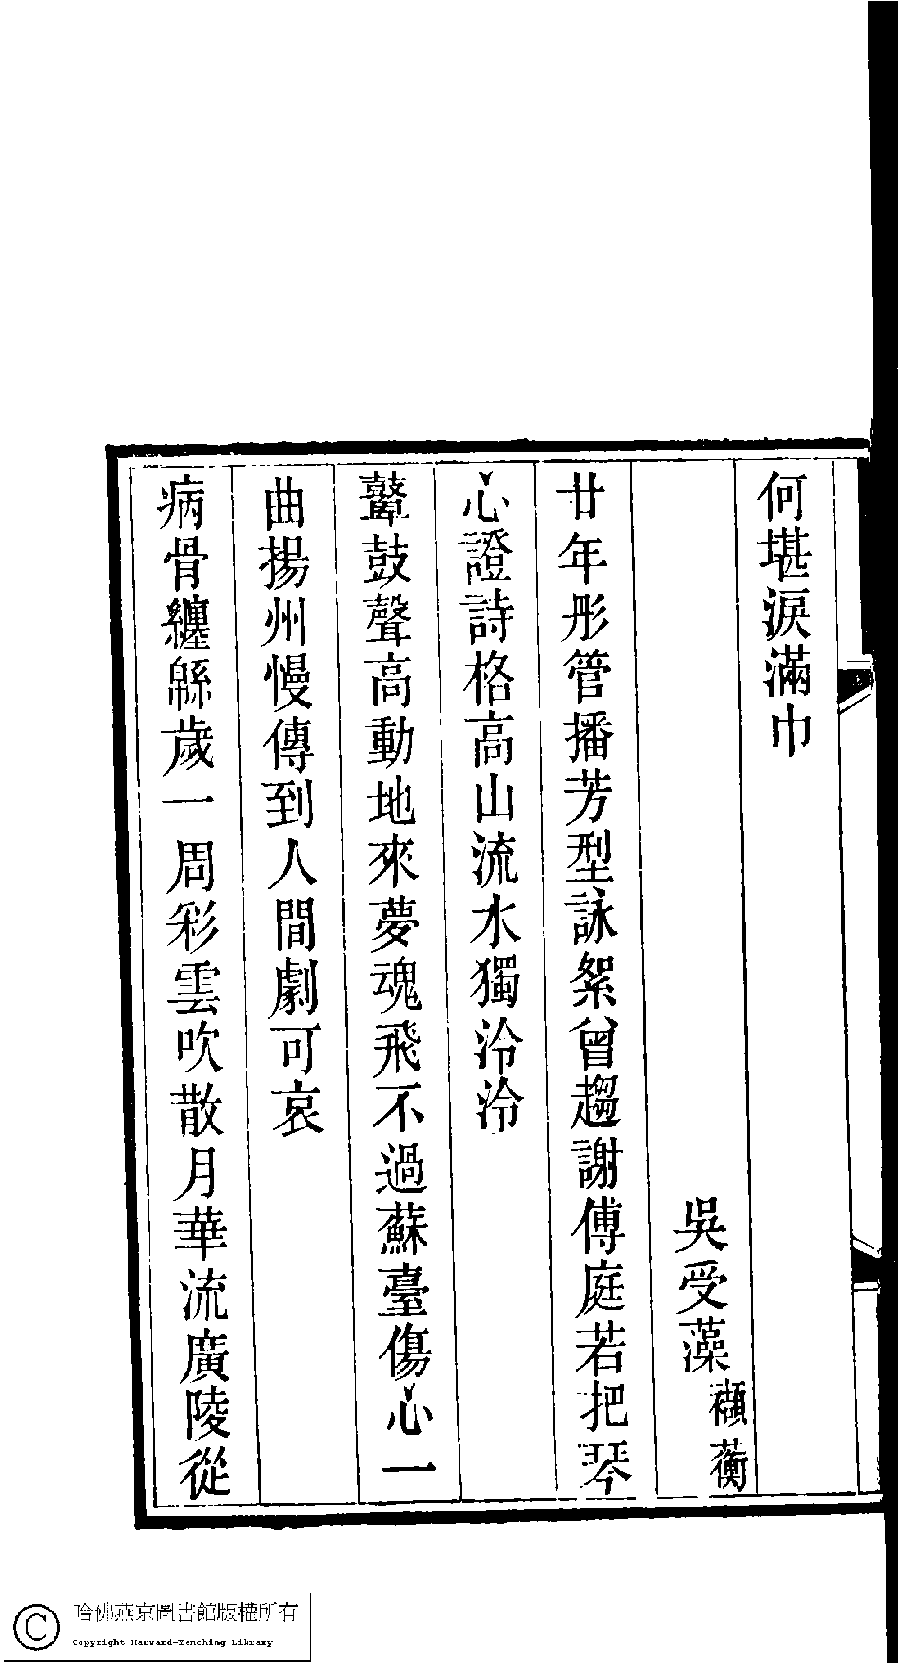 何堪淚滿巾
吳受藻 蘅
廿年彤管播芳型詠絮曾趨謝傅庭若把琴
心證詩格高山流水獨泠泠
鼙鼓聲高動地來夢魂飛不過蘇臺傷心一
曲揚州慢傳到人間劇可哀
病骨纏緜歲一周彩雲吹散月華流廣陵從
哈佛燕京圖書館版權所有
Copyright Harvard-Yenching Library